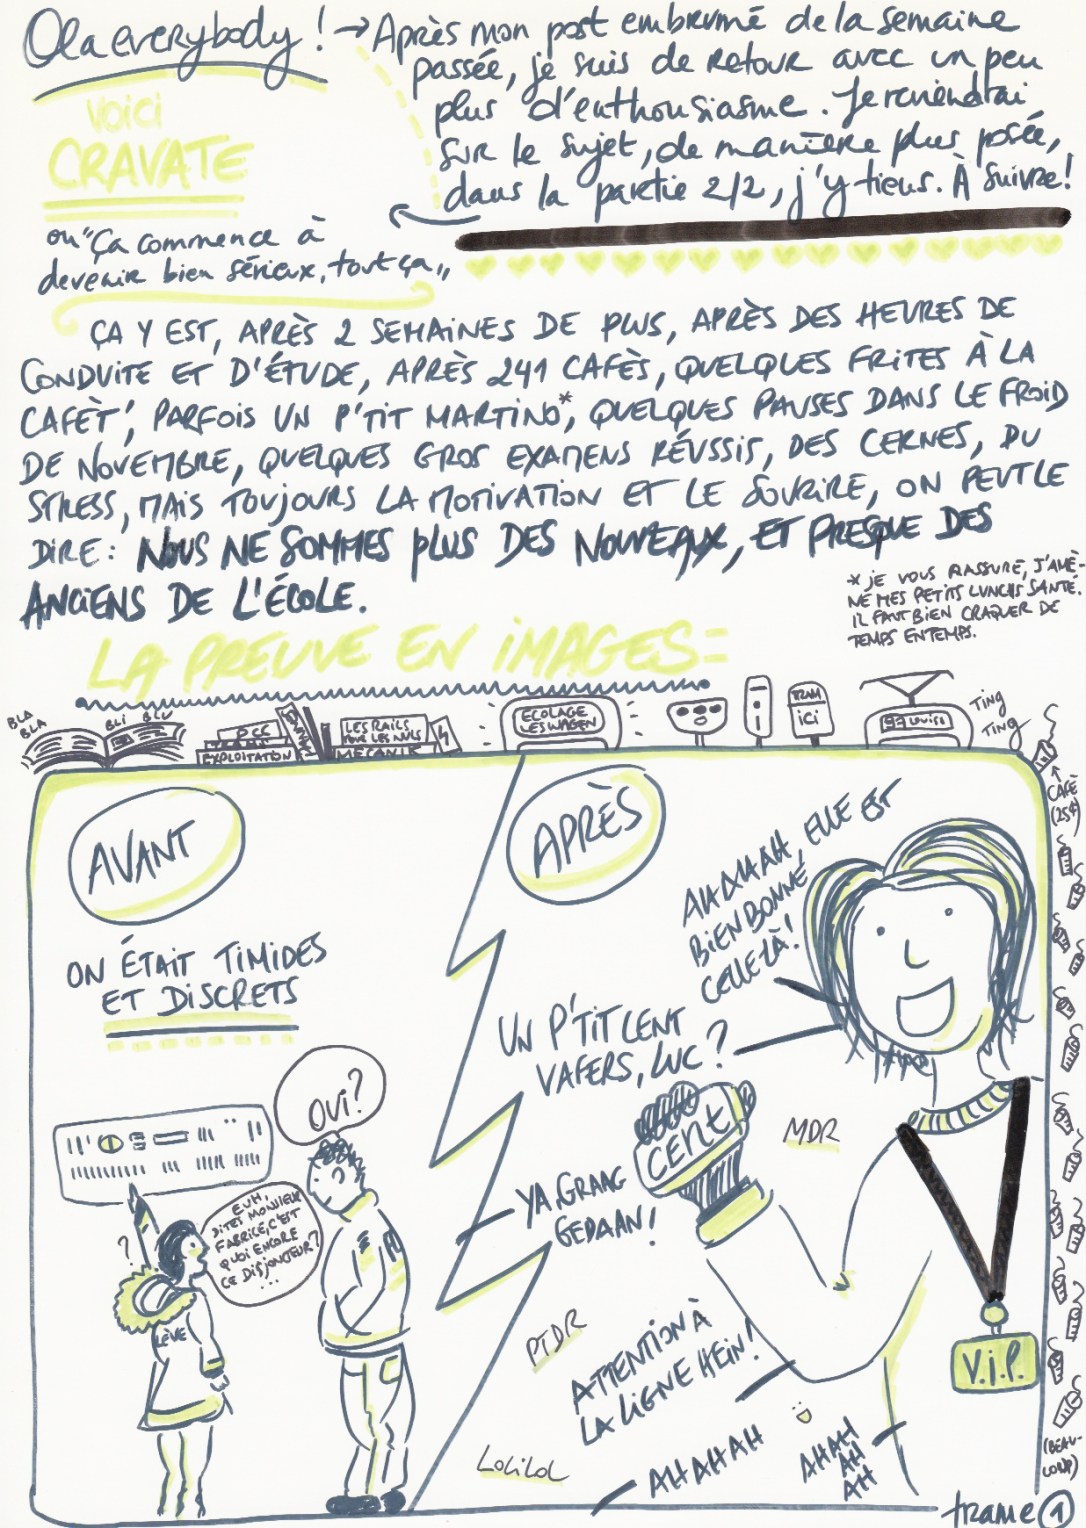 Ola everybody ! → Après mon post embrumé de la semaine
passée, je suis de retour avec un peu
plus d'enthousiasme. Je reviendrai
sur le sujet, de manière plus posée,
dans la partie 2/2, j'y tiens. À suivre!
VOICI
CRAVATE
ou "Ça commence à
devenir bien sérieux, tout ça"
ÇA Y EST, APRÈS 2 SEMAINES DE PLUS, APRÈS DES HEURES DE
CONDUITE ET D'ÉTUDE, APRÈS 241 CAFÈS, QUELQUES FRITES À LA
CAFÈT', PARFOIS UN P'TIT MARTINO*, QUELQUES PAUSES DANS LE FROID
DE NOVEMBRE, QUELQUES GROS EXAMENS RÉUSSIS, DES CERNES, DU
STRESS, MAIS TOUJOURS LA MOTIVATION ET LE SOURIRE, ON PEUT LE
DIRE : NOUS NE SOMMES PLUS DES NOUVEAUX, ET PRESQUE DES
ANCIENS DE L'ÉCOLE.
* JE VOUS RASSURE, J'AMÈ-
NE MES PETITS LUNCHS SANTÉ.
IL FAUT BIEN CRAQUER DE
TEMPS EN TEMPS.
LA PREUVE EN IMAGES :
BLA
BLA
BLI BLU
DCC
TRAM
EXPLOITATION
LES RAILS
POUR LES NULS
MECANIK
ECOLAGE
LESWAGEN
TRAM
ici
93 Louise
TING
TING
CAFÉ
(25¢)
AVANT
APRÈS
ON ÉTAIT TIMIDES
ET DISCRETS
OUI?
EUH,
DITES MONSIEUR
FABRICE, C'EST
QUOI ENCORE
CE DISJONCTEUR?
...
?
?
ÉLÈVE
AHAHAH, ELLE EST
BIEN BONNE
CELLE-LÀ!
UN P'TIT CENT
VAFERS, LUC ?
CENT
MDR
YA, GRAAG
GEDAAN!
PTDR
ATTENTION À
LA LIGNE HEIN!
V.I.P.
LOLILOL
AHAHAH
AHAH
AH
AH
(BEAU-
COUP)
frame 1